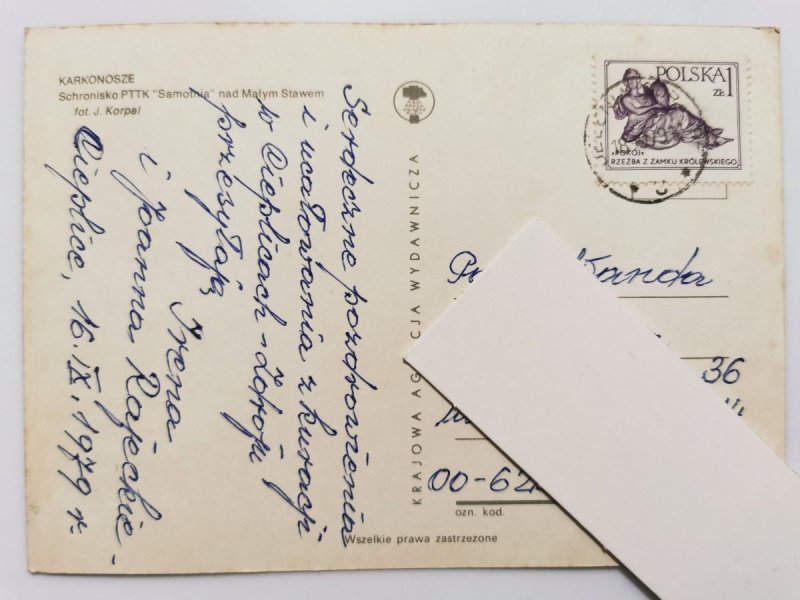 KARKONOSZE
Schronisko PTTK "Samotnia" nad Małym Stawem
fot. J. Korpal
Serdeczne pozdrowienia
i ucałowania z kuracji
w Cieplicach-Zdroju
przesyłają
Irena
i Joanna Rajeckie-
Cieplice, 16.IX.1979 r.
KRAJOWA AGENCJA WYDAWNICZA
Wszelkie prawa zastrzeżone
POLSKA 1
ZŁ
"POKÓJ"
RZEŹBA Z ZAMKU KRÓLEWSKIEGO
Wanda
36
00-62
ozn. kod.